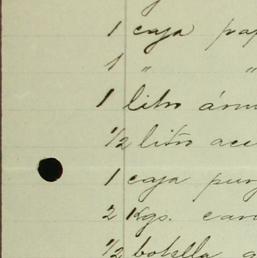 1 caja pap
1 " "
1 litro árni
1/2 litro ace
1 caja pur
2 Kgs. car
1/2 botella a